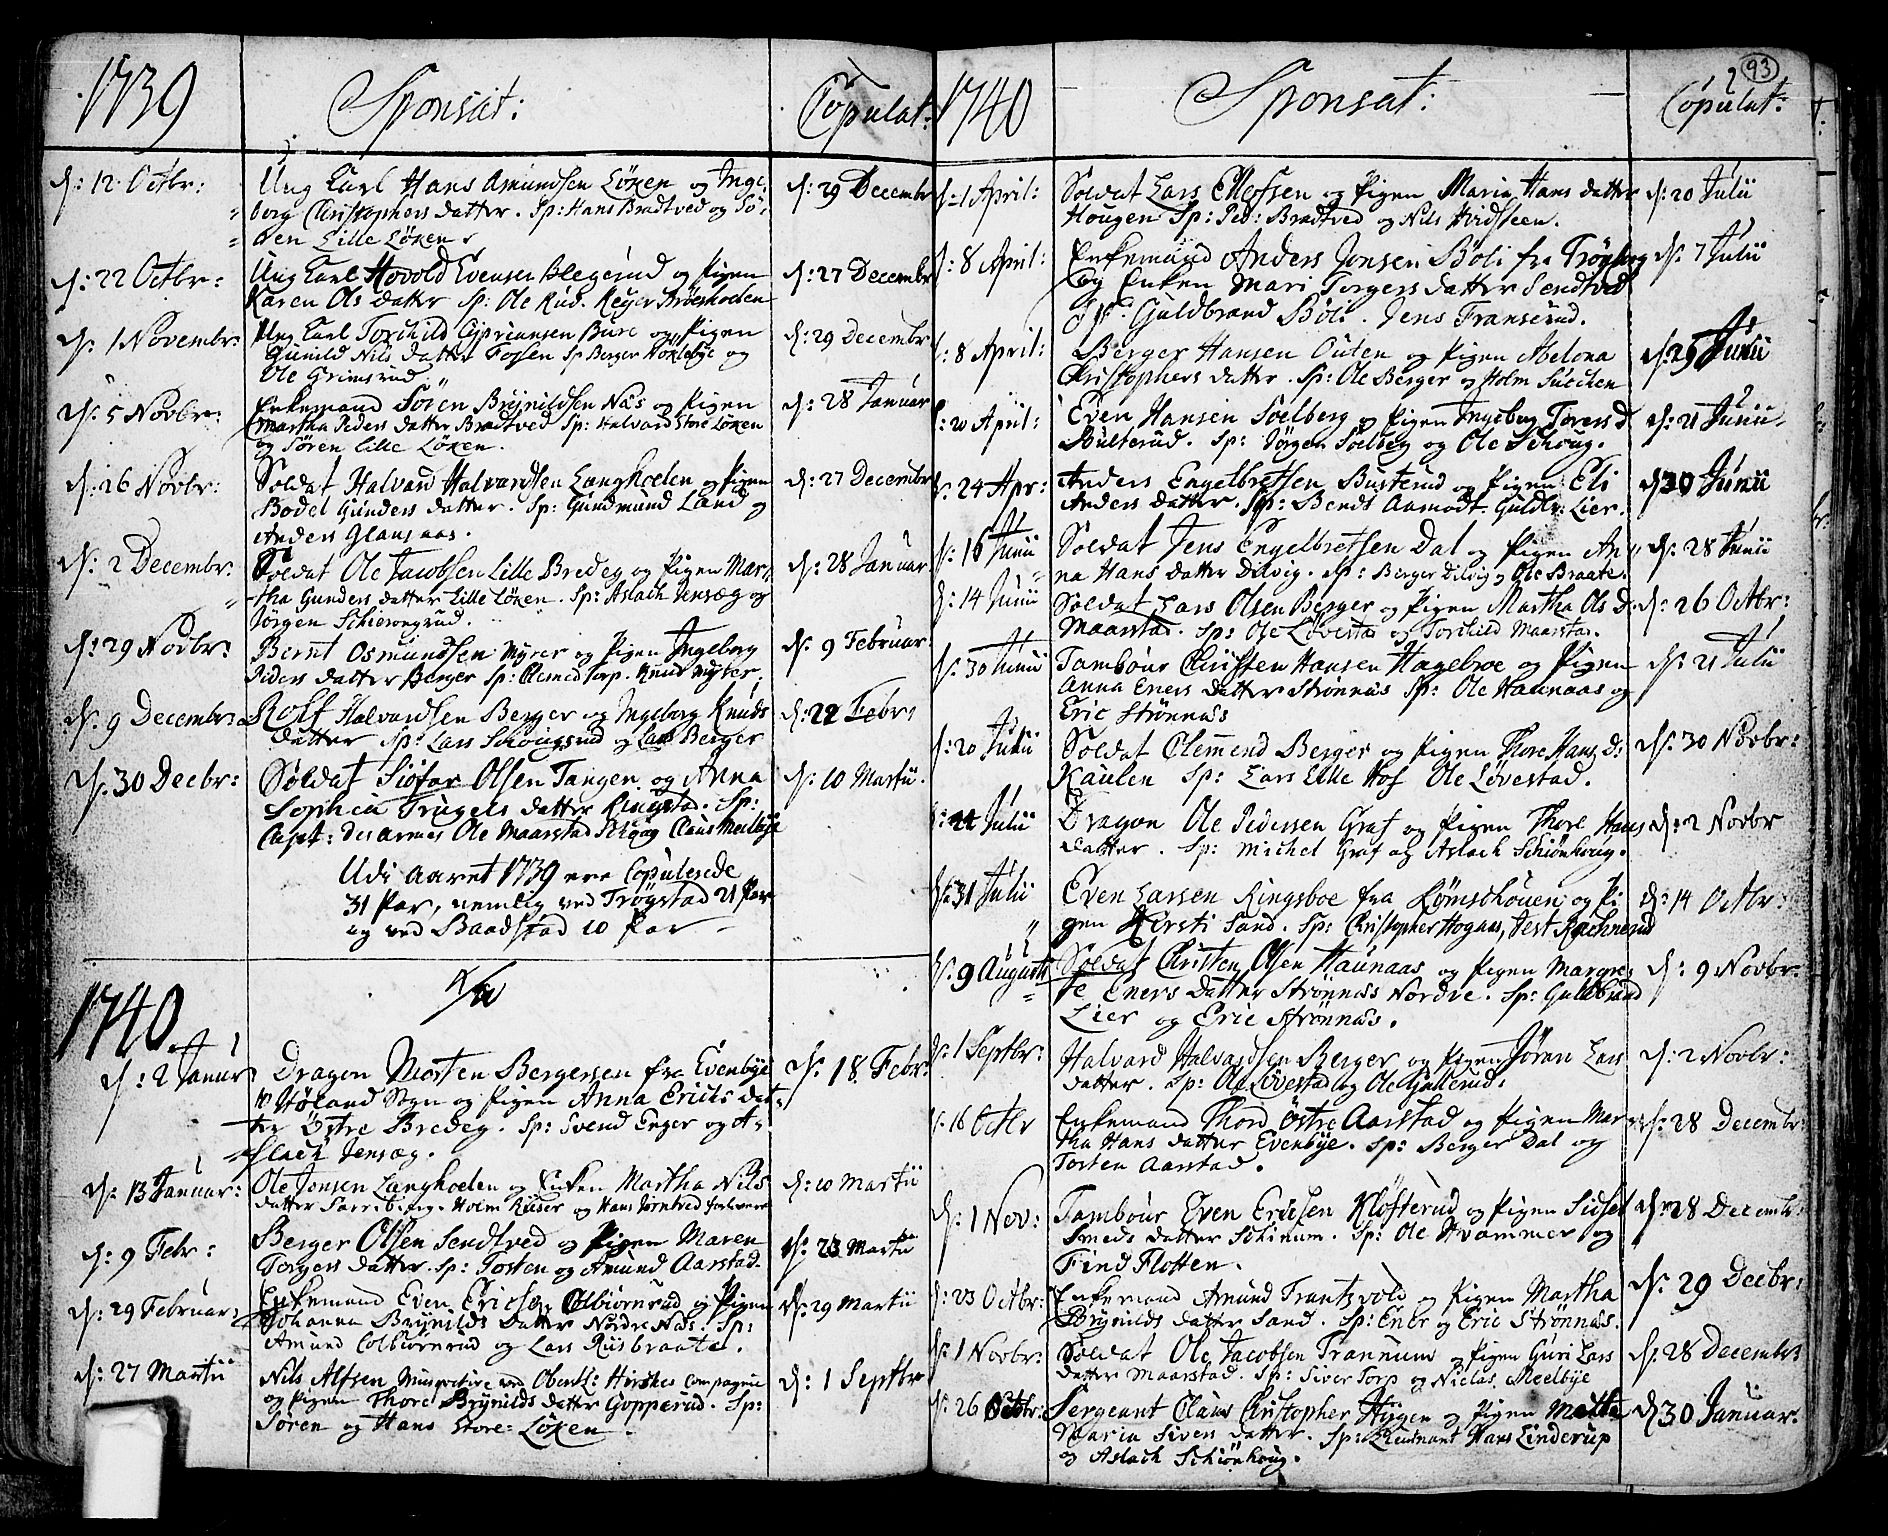 1739 Sponsat: Copulat:
d: 12 Octbr: Ung Karl Hans Amundsen Löken og Inge- d: 29 Decembr
berg Christophers datter. Sp: Hans Bradtved og Sö-
ren Lille Löken.
d: 22 Octbr: Ung Karl Hovold Evensen Blegerud og Pigen d: 27 Decembr
Karen Ols datter Sp: Ole Rud.
d: 1 Novembr: Ung Karl Torchild Cypriansen Bure og Pigen d: 29 Decembr
Gunild Nils datter Fossen Sp Berger Noklebye og
Ole Grimsrud.
d: 5 Novbr: Enkemand Sören Brynildsen Näs og Pigen d: 28 Januar
Martha Peders datter Bradtved Sp: Halvard Store Löken
og Sören Lille Löken.
d: 26 Novbr: Soldat Halvard Halvardsen Langhoelen og Pigen d: 27 Decembr
Bodel Gunders datter. Sp: Gundmund Land og
Anders Glansaas.
d: 2 Decembr. Soldat Ole Jacobsen Lille Bredeg og Pigen Mar- d: 28 Januar
tha Gunders datter Lille Löken. Sp: Aslach Jensæg og
Jörgen
d: 29 Novbr: Bernt Osmundsen Myrer og Pigen Ingeborg d: 9 Februar:
Peders datter Berger Sp: Torp. Knud Myrer.
d: 9 Decembr: Rolf Halvardsen Berger og Ingeborg Knuds d: 22 Febr:
datter Sp: Lars og Lars Berger
d: 30 Decbr: Soldat Olsen Tangen og Anna d: 10 Martii.
Sophia Trugels datter Ringstad. Sp:
Capt: Ole Maarstad og Claus Meelbye
Udi Aaret 1739 ere Copulerede
31 Par, nemlig ved Trögstad 21 Par
og ved Baadstad 10 Par
1740
d: 2 Januar Dragon Morten Bergersen fra Evenbye d: 18 Febr:
Höland Sogn og Pigen Anna Erichs dat-
ter Östre Bredeg. Sp: Svend Enger og A-
slach Jensæg.
d: 13 Januar: Ole Jensen Langhoelen og Enken Martha Nils d: 10 Martii
datter Holm og Hans
d: 9 Febr: Berger Olsen Sendtved og Pigen Maren d: 23 Martii
Torgers datter. Sp: Torsten og Amund Aarstad.
d: 29 Februar: Enkemand Even Ericsen Colbiörnrud og Pigen d: 29 Martii
Johanna Brynilds datter Nordre Näs. Sp:
Amund Colbiörnrud og Lars Riisbraate.
d: 27 Martii Nils Alfsen Musqvetire ved Obersl: Compagnie d: 1 Septbr
og Pigen Thore Brynilds datter Gopperud. Sp:
Sören og Hans Store Löken.
93
1740 Sponsat: Copulat:
d: 1 April: Soldat Lars Ellefsen og Pigen Maria Hans datter d: 20 Julii
Hougen Sp: Ped: Bradtved og Nils
d: 8 April: Enkemand Anders Jonsen Böli fra Tröyborg d: 7 Julii
Og Enken Mari Torgers datter Sendtved
Sp: Guldbrand Böli. Jens Franserud.
d: 8 April: Berger Hansen Outen og Pigen Abelona d: 29 Junii
Christophers datter. Sp: Ole Berger og Holm
d: 20 April: Even Hansen Soelberg og Pigen Ingeborg Torers d d: 21 Junii
Sp: Jörgen Soelberg og Ole Schoug.
d: 24 Apr: Anders Engelbretsen Busterud og Pigen Eli d: 30 Junii
Anders datter. Sp: Bendt Aamodt Guldbr: Lier.
d: 16 Junii Soldat Jens Engelbretsen Dal og Pigen An- d: 28 Junii
na Hans datter Dilvig. Sp: Berger Dilvig og Ole Braate.
d: 14 Junii Soldat Lars Olsen Berger og Pigen Martha Ols d: d: 26 Octbr:
Maarstad. Sp: Ole Lövestad og Torchild Maarstad.
d: 30 Junii Tambour Christen Hansen Hageboe og Pigen d: 21 Julii
Anna Eners datter Strönnäs Sp: Ole Haunaas og
Eric Strönnäs
d: 20 Julii Soldat Clemmend Berger og Pigen Thore Hans d: d: 30 Novbr:
Kaulen Sp: Lars Lille Hof Ole Lövestad.
d: 22 Julii Dragon Ole Pedersen Graf og Pigen Thore Hans d: 2 Novbr
datter. Sp: Michel Graf og Aslach Schiönhoug.
d: 31 Julii Even Larsen Ringsboe fra Römschouen og Pi- d: 14 Octbr:
gen Kersti Sand. Sp: Christopher
d: 9 Augusti Soldat Christen Olsen Haunaas og Pigen Margre- d: 9 Novbr:
te Eners datter Strönnäs Nordre. Sp: Guldbrand
Lier og Eric Strönnäs.
d: 1 Septbr: Halvard Halvardsen Berger og Pigen Jören Lars d: 2 Novbr:
datter. Sp: Ole Lövestad og Ole Gullerud.
d: 16 Octbr Enkemand Thord Östre Aarstad og Pigen Mar- d: 28 Decembr:
tha Hans datter Evenbye. Sp: Berger Dal og
Torsten Aarstad.
d: 1 Nov: Tambour Even Erichsen Klöfterud og Pigen Sidsel d: 28 Decembr:
Smeds datter Schinum. Sp: Ole Hvammer og
Find Flotten.
d: 23 Octbr: Enkemand Amund Frantzvold og Pigen Martha d: 29 Decbr:
Brynilds datter Sand. Sp: Ener og Eric Strönnäs.
d: 1 Novbr: Soldat Ole Jacobsen Trannum og Pigen Guri Lars d: 28 Decembr
datter Maarstad. Sp: Siver Torp og Niclas Meelbye
d: 26 Octbr: Sergeant Claus Christopher Hygen og Pigen Mette d: 30 Januar.
Maria Sivers datter. Sp: Lieutnant Hans Linderup
og Aslach Schiönhoug.